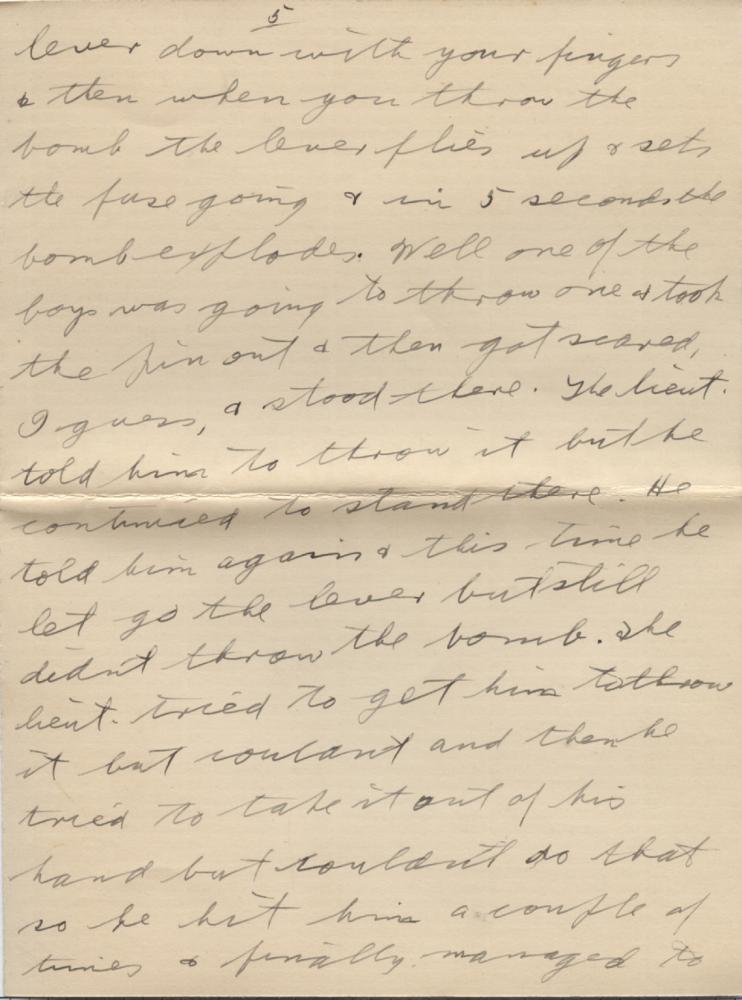 5
lever down with your fingers
& then when you throw the
bomb the lever flies up & sets
the fuse going & in 5 seconds the
bomb explodes. Well one of the
boys was going to throw one & took
the pin out & then got scared,
I guess, & stood there. The lieut.
told him to throw it but he
continued to stand there. He
told him again & this time he
let go the lever but still
didn't throw the bomb. The
lieut. tried to get him to throw
it but couldn't and then he
tried to take it out of his
hand but couldn't do that
so he hit him a couple of
times & finally managed to